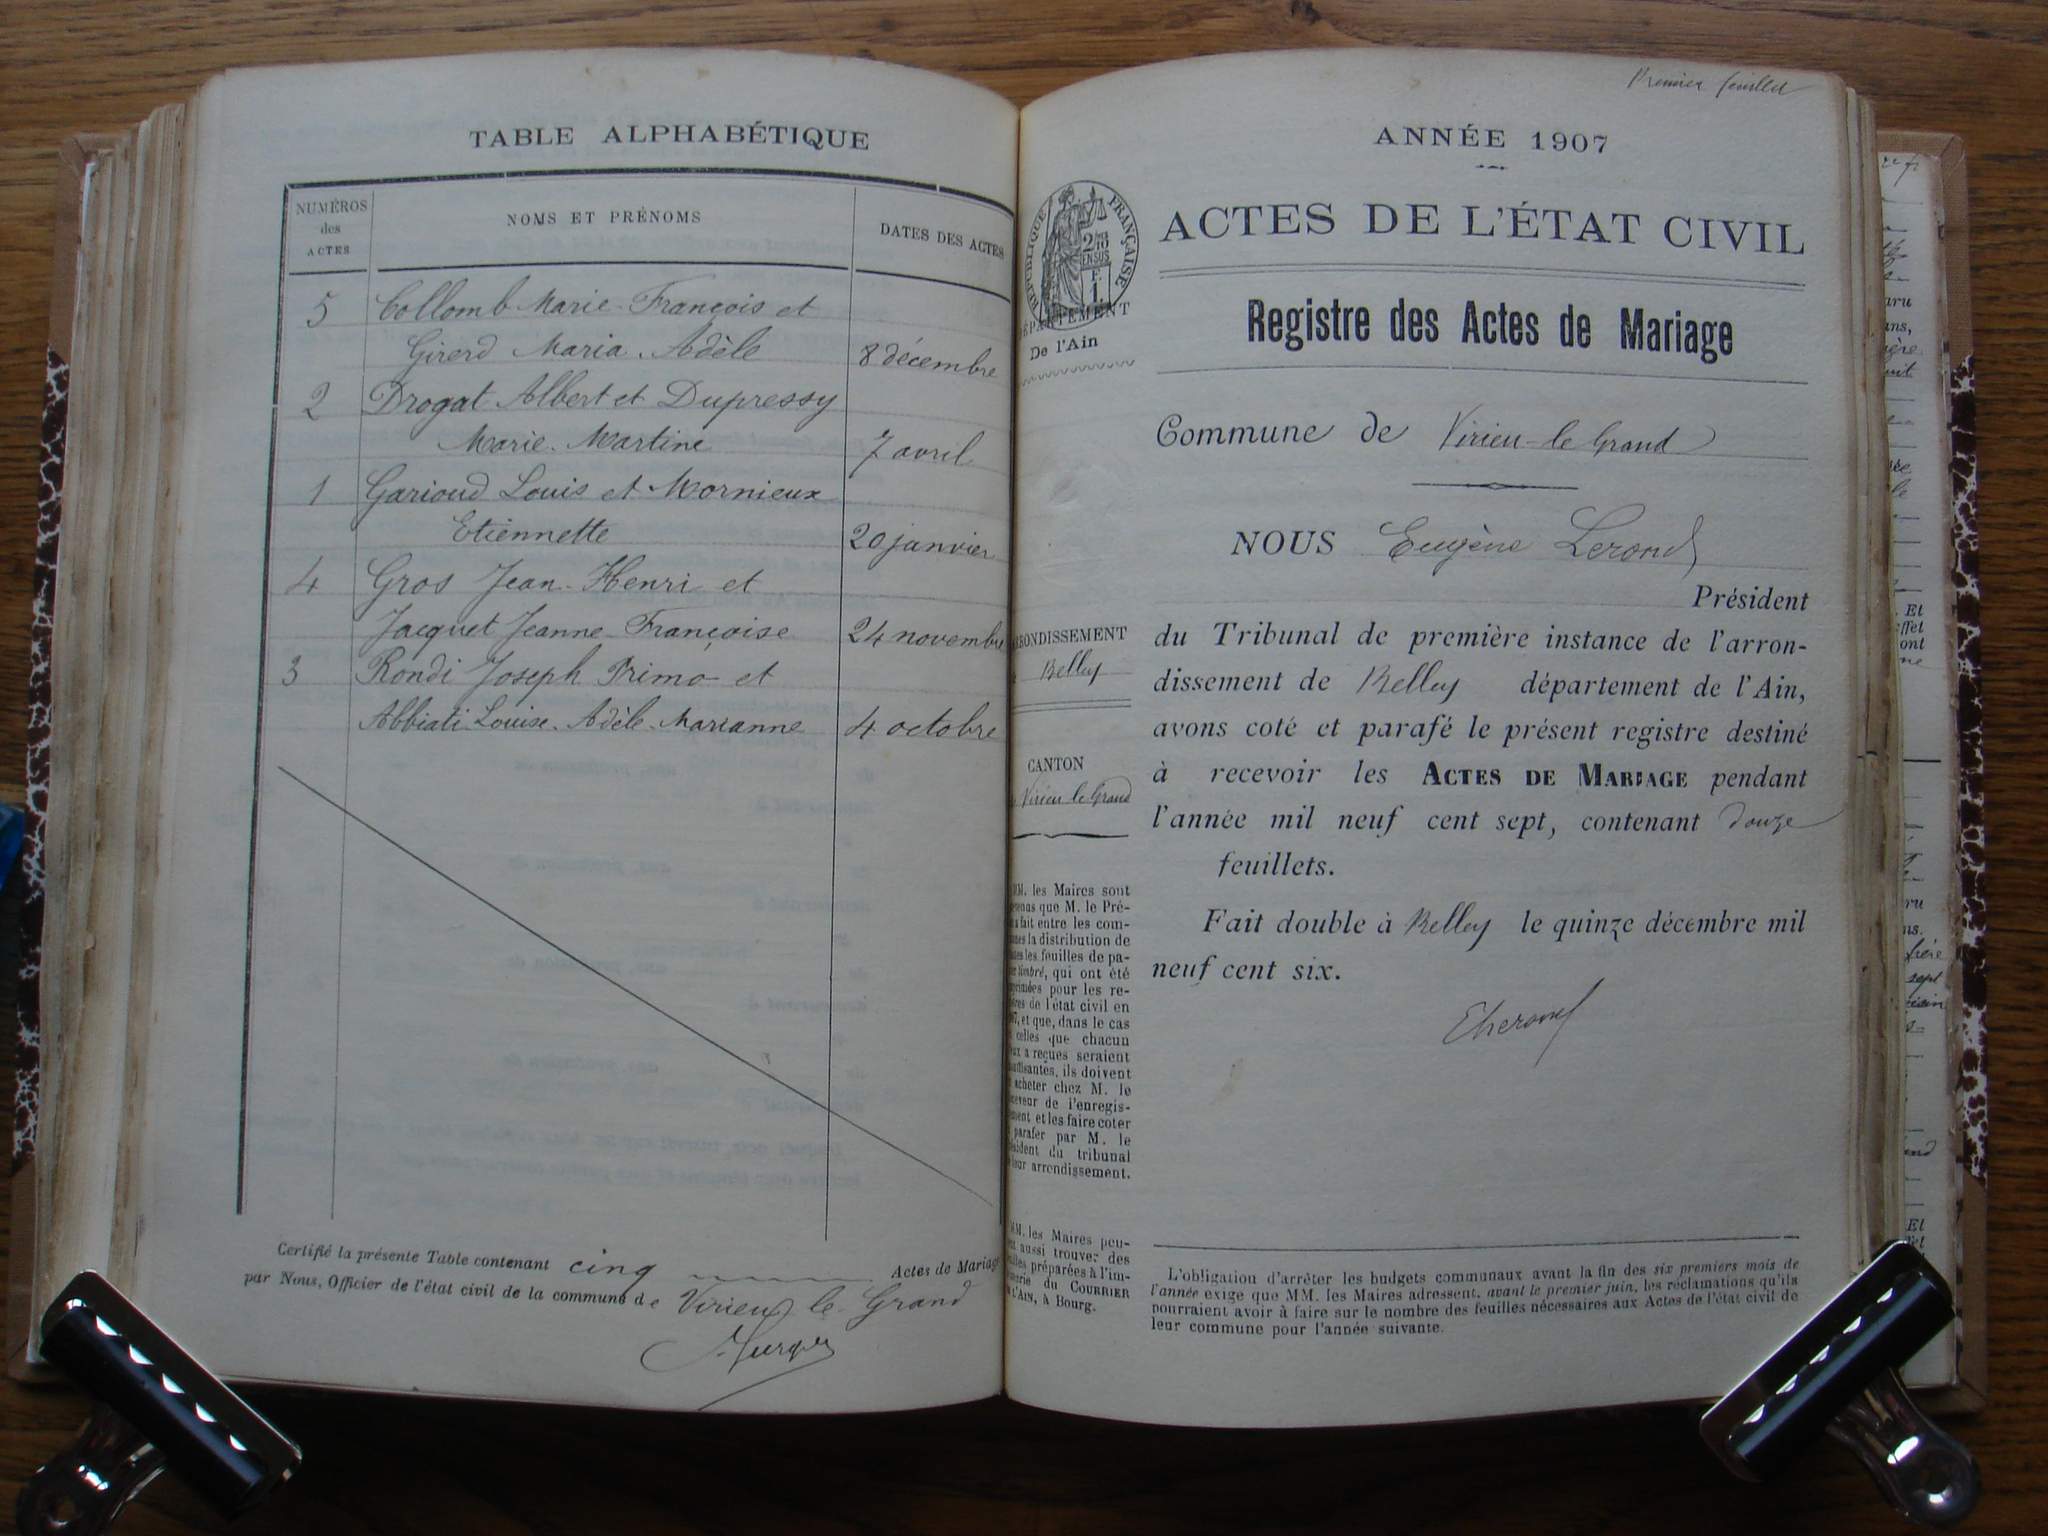 TABLE ALPHABÉTIQUE
NUMÉROS des ACTES
NOMS ET PRÉNOMS
DATES DES ACTES
5 Collomb Marie-François et
Girerd Maria-Adèle 8 décembre
2 Drogat Albert et Dupressy
Marie-Martine 7 avril
1 Garioud Louis et Mornieux
Etiennette 20 janvier
4 Gros Jean-Henri et
Jacquet Jeanne-Françoise 24 novembre
3 Rondi Joseph Primo et
Abbiati Louise-Adèle-Marianne 4 octobre
Certifié la présente Table contenant cinq Actes de Mariage
par Nous, Officier de l'état civil de la commune de Virieu le Grand
Premier feuillet
ANNÉE 1907
RÉPUBLIQUE FRANÇAISE
2/10 EN SUS
F. 1.
DÉPARTEMENT
De l'Ain
ACTES DE L'ÉTAT CIVIL
Registre des Actes de Mariage
Commune de Virieu-le-Grand
NOUS Eugène Lerond
Président
du Tribunal de première instance de l'arron-
dissement de Belley département de l'Ain,
avons coté et parafé le présent registre destiné
à recevoir les ACTES DE MARIAGE pendant
l'année mil neuf cent sept, contenant douze
feuillets.
Fait double à Belley le quinze décembre mil
neuf cent six.
ELerond
ARRONDISSEMENT
Belley
CANTON
Virieu le Grand
MM. les Maires sont
que M. le Pré-
a fait entre les com-
la distribution de
les feuilles de pa-
timbré, qui ont été
pour les re-
de l'état civil en
et que, dans le cas
celles que chacun
a reçues seraient
ils doivent
acheter chez M. le
de l'enregis-
et les faire coter
parafer par M. le
du tribunal
leur arrondissement.
MM. les Maires peu-
aussi trouver des
préparées à l'im-
du COURRIER
L'AIN, à Bourg.
L'obligation d'arrêter les budgets communaux avant la fin des six premiers mois de
l'année exige que MM. les Maires adressent, avant le premier juin, les réclamations qu'ils
pourraient avoir à faire sur le nombre des feuilles nécessaires aux Actes de l'état civil de
leur commune pour l'année suivante.